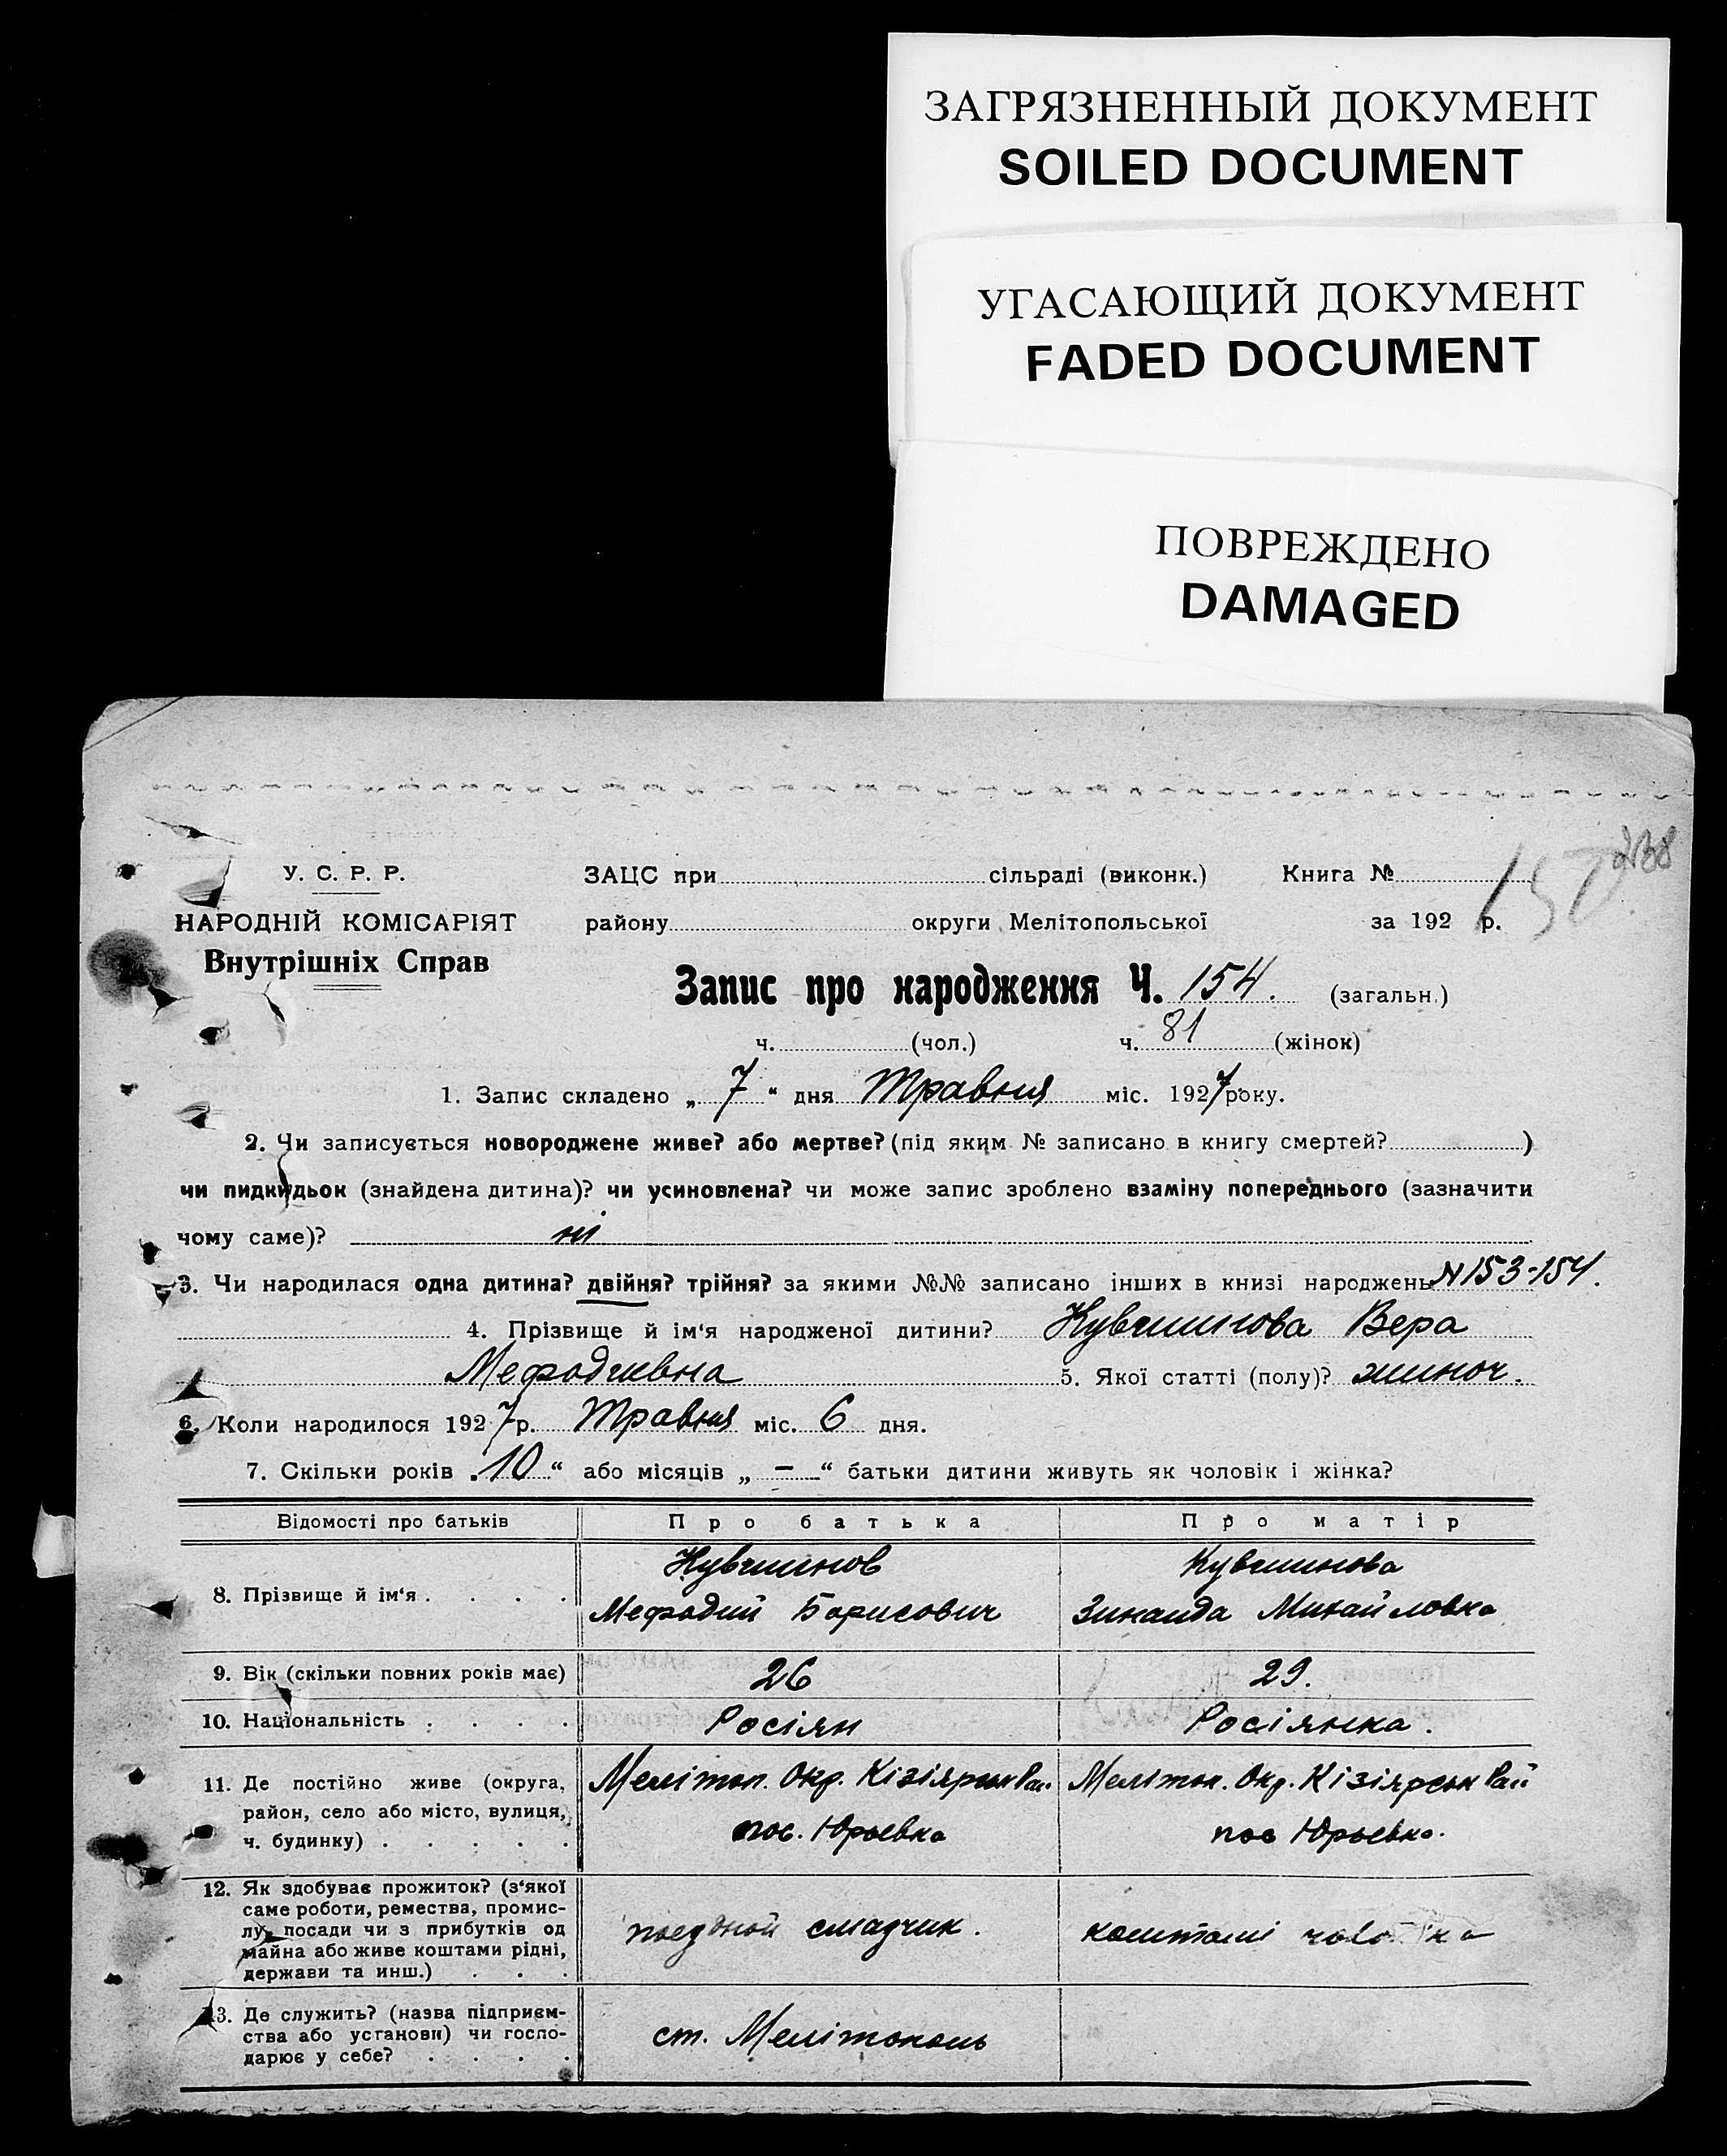 ЗАГРЯЗНЕННЫЙ ДОКУМЕНТ
SOILED DOCUMENT
УГАСАЮЩИЙ ДОКУМЕНТ
FADED DOCUMENT
ПОВРЕЖДЕНО
DAMAGED
238
У. С. Р. Р.
НАРОДНІЙ КОМІСАРІЯТ
Внутрішніх Справ
ЗАЦС при сільраді (виконк.) Книга №
району округи Мелітопольської за 192 р.
Запис про народження Ч. 154. (загальн.)
ч. (чол.) ч. 81 (жінок)
1. Запис складено „ 7 “ дня Травня міс. 1927 року.
2. Чи записується новороджене живе? або мертве? (під яким № записано в книгу смертей? )
чи пидкидьок (знайдена дитина)? чи усиновлена? чи може запис зроблено взаміну попереднього (зазначити
чому саме)? ні
3. Чи народилася одна дитина? двійня? трійня? за якими №№ записано інших в книзі народжень N 153-154.
4. Прізвище й ім‘я народженої дитини? Кувчинова Вера
Мефодиевна 5. Якої статті (полу)? жиноч.
6. Коли народилося 1927 р. Травня міс. 6 дня.
7. Скільки років „ 10 “ або місяців „ — “ батьки дитини живуть як чоловік і жінка?
Відомості про батьків Про батька Про матір
8. Прізвище й ім‘я . . . . Кувчинов Мефодий Борисович Кувчинова Зинаида Михайловна
9. Вік (скільки повних років має) 26 29.
10. Національність . . . . Росіян Росіянка.
11. Де постійно живе (округа, Мелітоп. Окр. Кізіярськ Рай Мелітоп. Окр. Кізіярськ Рай
район, село або місто, вулиця, пос. Юрьевка пос Юрьевка.
ч. будинку) . . . . .
12. Як здобуває прожиток? (з‘якої
саме роботи, ремества, промис-
лу, посади чи з прибутків од поездной смазчик. коштами
майна або живе коштами рідні,
держави та инш.) . . .
13. Де служить? (назва підприєм-
ства або установи) чи госпо- ст. Мелітополь
дарює у себе? . . . .